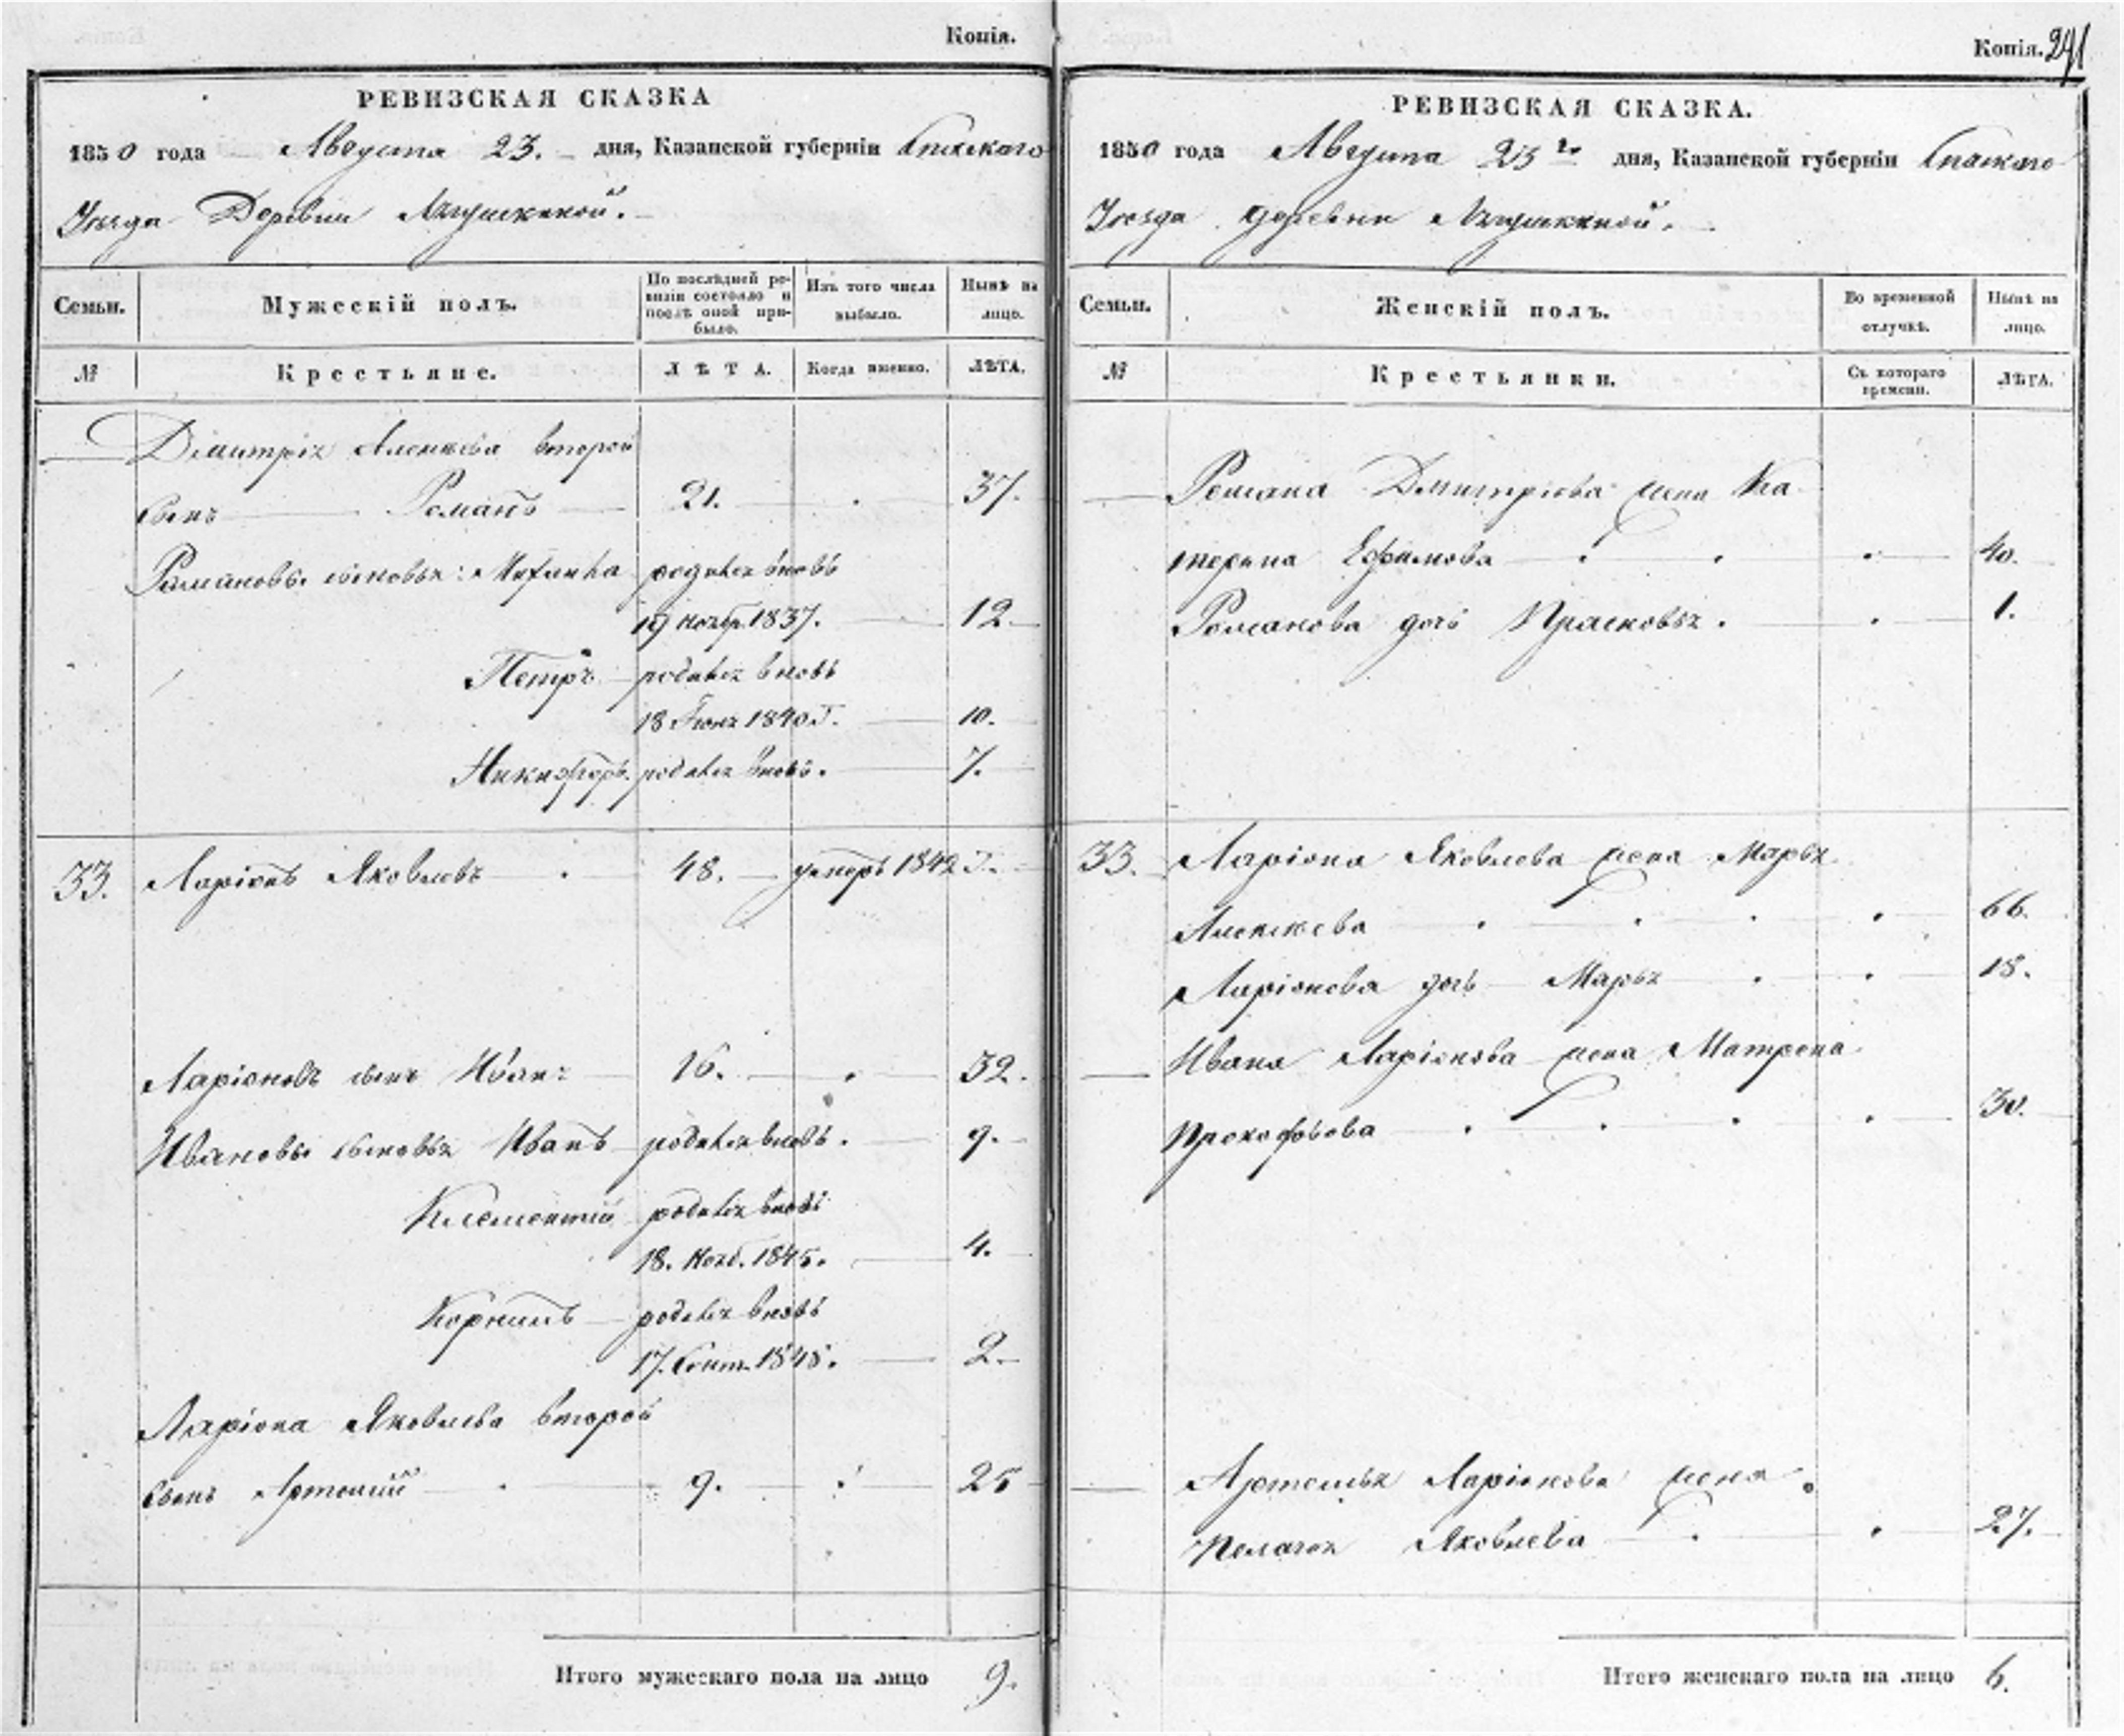 Копія.
РЕВИЗСКАЯ СКАЗКА
1850 года Августа 23. дня, Казанской губерніи Спаскаго
Уезда Деревни
Семьи.
Мужескій полъ.
По послѣдней ревизіи состояло и послѣ оной прибыло.
Изъ того числа выбыло.
Нынѣ на лицо.
№
Крестьяне.
ЛѢТА.
Когда именно.
ЛѢТА.
Дмитрія Алексѣва второй
сынъ Романъ 21. 37.
Романовы сыновья: родился вновь
19 Ноябр. 1837. 12
Петръ родился вновь
18 Іюня 1840 Г. 10.
Никифоръ. родился вновь. 7.
33. Ларіонъ Яковлевъ 48. умеръ 1842 Г.
Ларіоновъ сынъ Иванъ 16. 32.
Ивановы сыновья Иванъ родился вновь. 9.
Клементій родился вновь
18. Нояб. 1845. 4.
Корнилъ родился вновь
17. Сент. 1848. 2.
Ларіона Яковлева второй
сынъ Артемий 9. 25
Итого мужескаго пола на лицо 9.
Копія. 241
РЕВИЗСКАЯ СКАЗКА.
1850 года Августа 23 го дня, Казанской губерніи Спаскаго
Уезда деревни
Семьи.
Женскій полъ.
Во временной отлучкѣ.
Нынѣ на лицо.
№
Крестьянки.
Съ котораго времени.
ЛѢТА.
Романа Дмитріева жена Ка
терина Ефимова 40.
Романова дочь Прасковья. 1.
33. Ларіона Яковлева жена Марья
Алексѣева 66.
Ларіонова дочь Марья 18.
Ивана Ларіонова жена Матрена
Прокофьева 30.
Артемья Ларіонова жена
Пелагея Яковлева 27.
Итого женскаго пола на лицо 6.